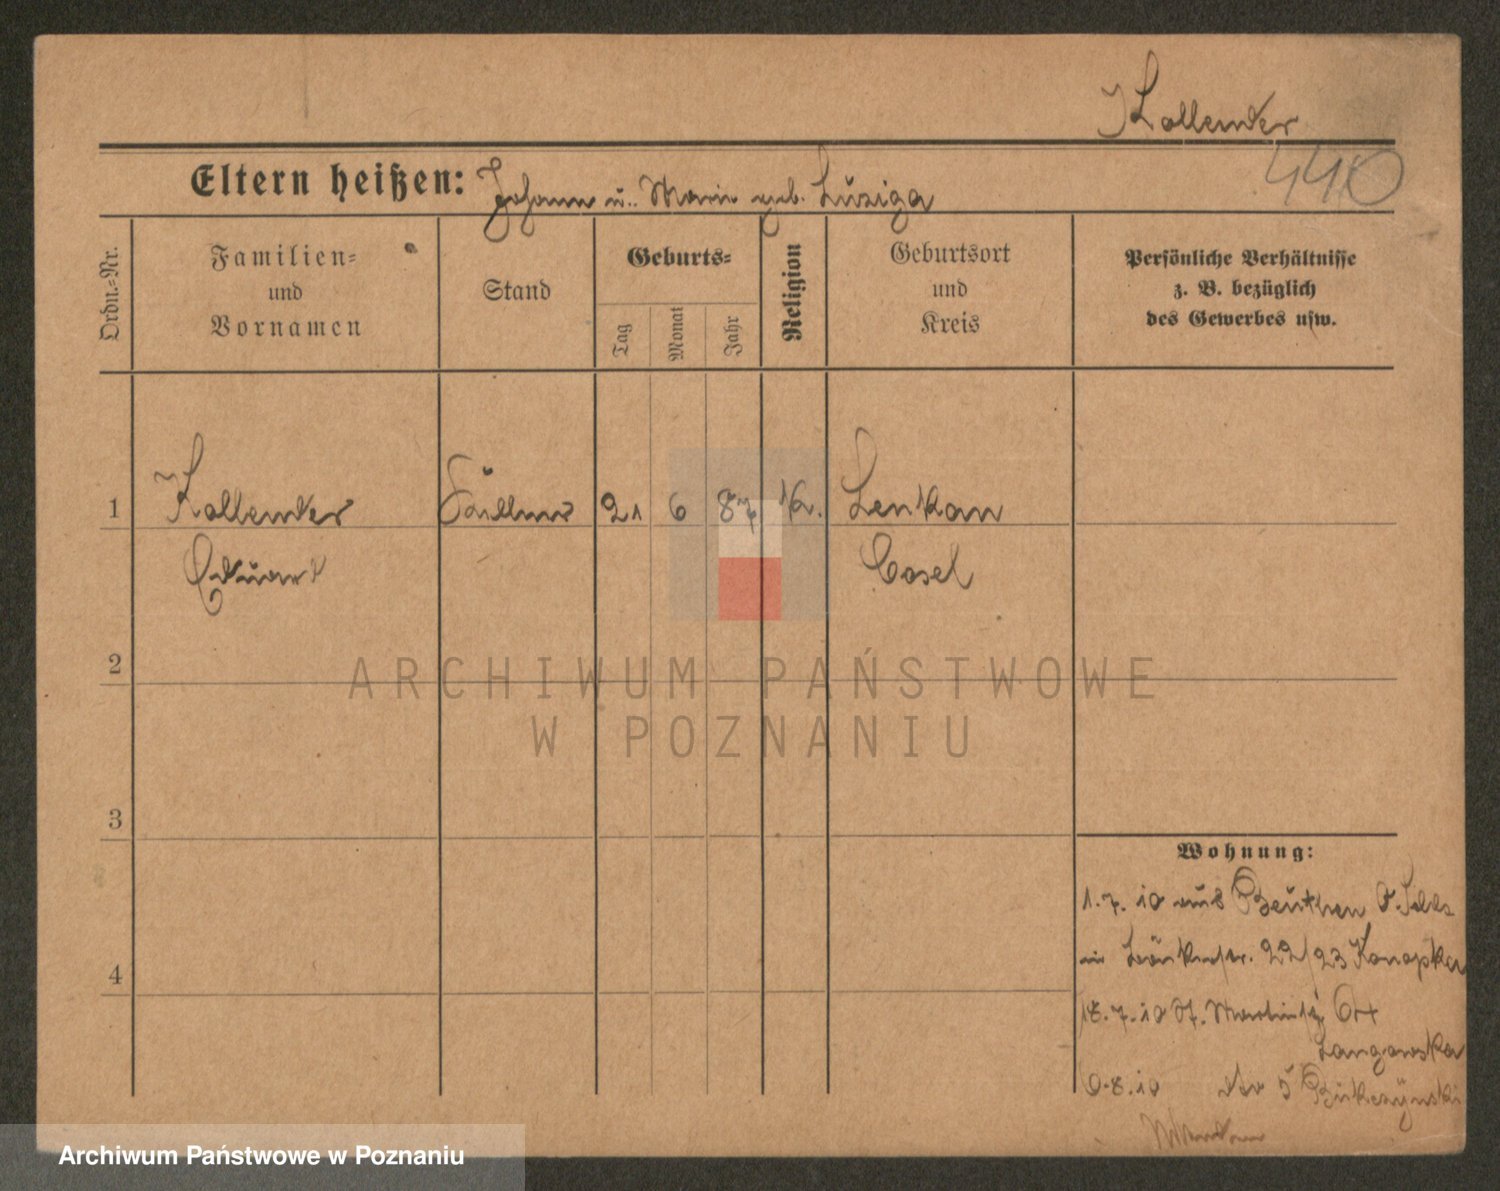 Kollender
440
Eltern heißen: Johann u. Marie geb. Luziga
Ordn.-Nr.
Familien-
und
Vornamen
Stand
Geburts-
Tag
Monat
Jahr
Religion
Geburtsort
und
Kreis
Persönliche Verhältnisse
z. B. bezüglich
des Gewerbes usw.
1
Kollender
Eduard
21
6
87
K.
Lenkau
Cosel
2
ARCHIWUM PAŃSTWOWE
W POZNANIU
3
Wohnung:
1.7.10 aus Beuthen
22/23 Konopka
4
18.7.10 St. Martinstr.
Langowska
8.10
5
Archiwum Państwowe w Poznaniu